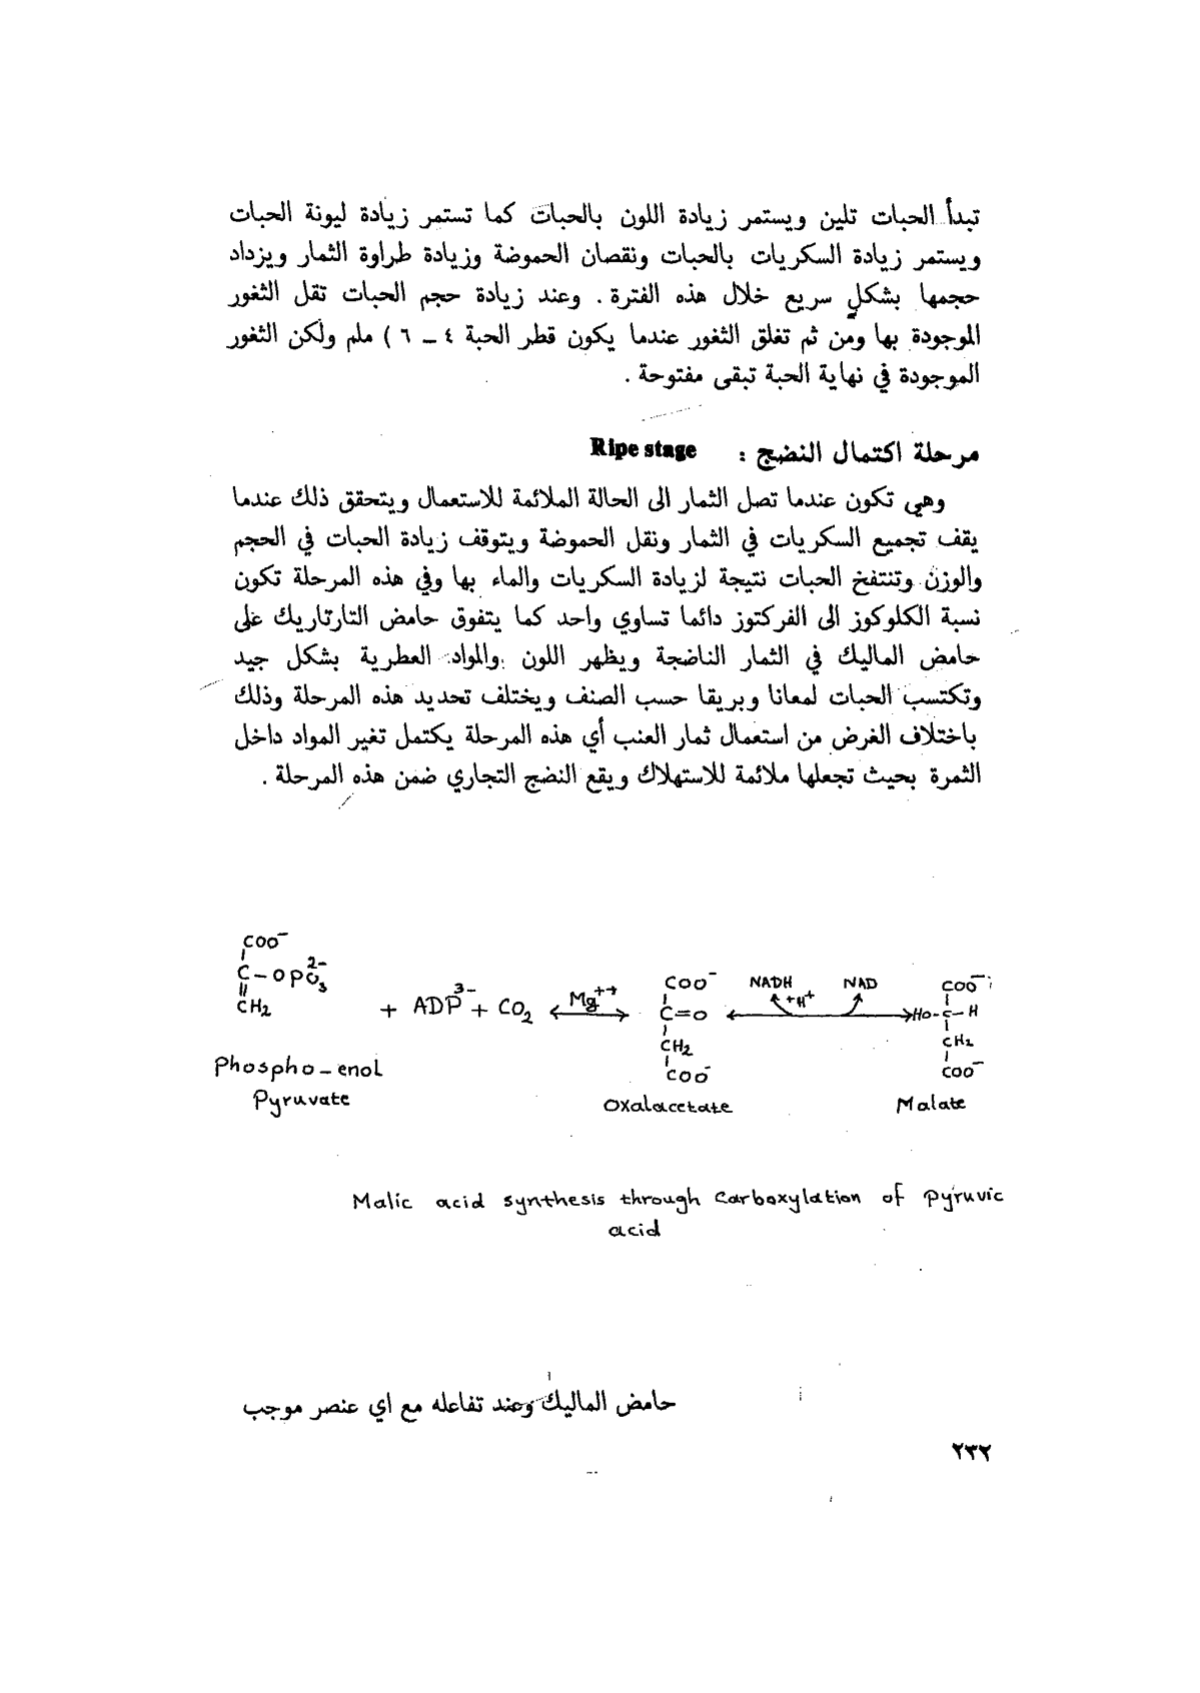 تبدأ الحبات تلين ويستمر زيادة اللون بالحبات كما تستمر زيادة ليونة الحبات
ويستمر زيادة السكريات بالحبات ونقصان الحموضة وزيادة طراوة الثمار ويزداد
حجمها بشكل سريع خلال هذه الفترة . وعند زيادة حجم الحبات تقل الثغور
الموجودة بها ومن ثم تغلق الثغور عندما يكون قطر الحبة ٤ – ٦ ) ملم ولكن الثغور
الموجودة في نهاية الحبة تبقى مفتوحة .
مرحلة اكتمال النضج : Ripe stage
وهي تكون عندما تصل الثمار الى الحالة الملائمة للاستعمال ويتحقق ذلك عندما
يقف تجميع السكريات في الثمار ونقل الحموضة ويتوقف زيادة الحبات في الحجم
والوزن وتنتفخ الحبات نتيجة لزيادة السكريات والماء بها وفي هذه المرحلة تكون
نسبة الكلوكوز الى الفركتوز دائما تساوي واحد كما يتفوق حامض التارتاريك على
حامض الماليك في الثمار الناضجة ويظهر اللون والمواد العطرية بشكل جيد
وتكتسب الحبات لمعانا وبريقا حسب الصنف ويختلف تحديد هذه المرحلة وذلك
باختلاف الغرض من استعمال ثمار العنب أي هذه المرحلة يكتمل تغير المواد داخل
الثمرة بحيث تجعلها ملائمة للاستهلاك ويقع النضج التجاري ضمن هذه المرحلة .
COO⁻
C – O PO₃²⁻
CH₂
+ ADP³⁻ + CO₂ ⟷ Mg⁺⁺
COO⁻
C=O
CH₂
COO⁻
NADH +H⁺ NAD
COO⁻
HO-C-H
CH₂
COO⁻
Phospho-enol
Pyruvate
Oxalacetate
Malate
Malic acid synthesis through Carboxylation of Pyruvic
acid
حامض الماليك وعند تفاعله مع اي عنصر موجب
٢٣٢